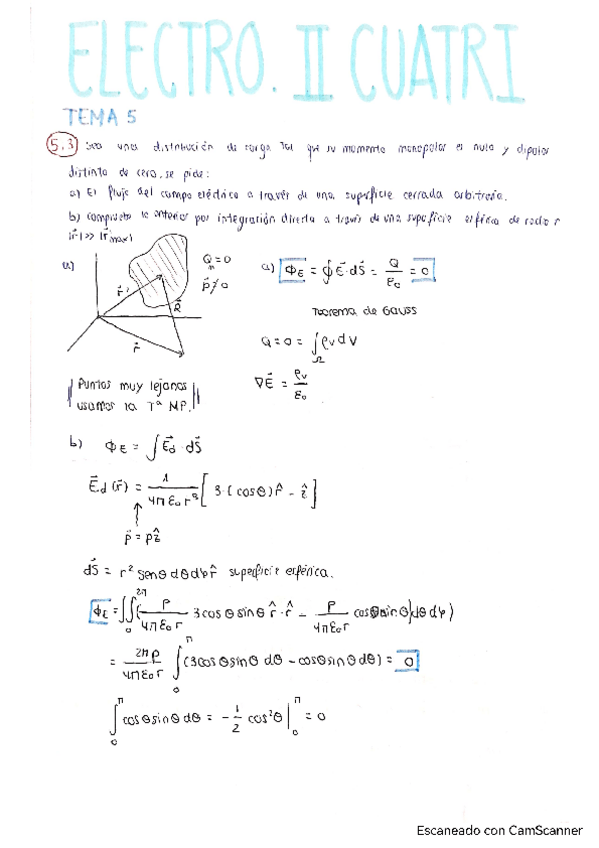 ELECTRO. II CUATRI
TEMA 5
5.3 Sea una distribución de carga tal que su momento monopolar es nulo y dipolar
distinto de cero. se pide:
a) El flujo del campo eléctrico a través de una superficie cerrada arbitraria.
b) compruebe lo anterior por integración directa a través de una superficie esférica de radio r
|r⃗| >> |r⃗'max|
a) Q = 0
p⃗ ≠ 0
r⃗' R⃗
r⃗
a) Φ_E = ∮ E⃗·dS⃗ = Q/ε₀ = 0
Teorema de Gauss
Q = 0 = ∫ ρv dV
∇E⃗ = ρv/ε₀
Puntos muy lejanos
usamos la Tª MP.
b) Φ_E = ∫ E⃗d · dS⃗
E⃗d (r⃗) = 1/4πε₀r³ [ 3·(cosθ) r̂ - ẑ ]
p⃗ = pẑ
dS⃗ = r² senθ dθ dφ r̂ superficie esférica.
Φ_E = ∬ ( p/4πε₀r 3cosθ sinθ r̂·r̂ - p/4πε₀r cosθ sinθ ) dθ dφ
= 2πp/4πε₀r ∫₀^π (3cosθ sinθ dθ - cosθ sinθ dθ) = 0
∫₀^π cosθ sinθ dθ = - 1/2 cos²θ |₀^π = 0
Escaneado con CamScanner